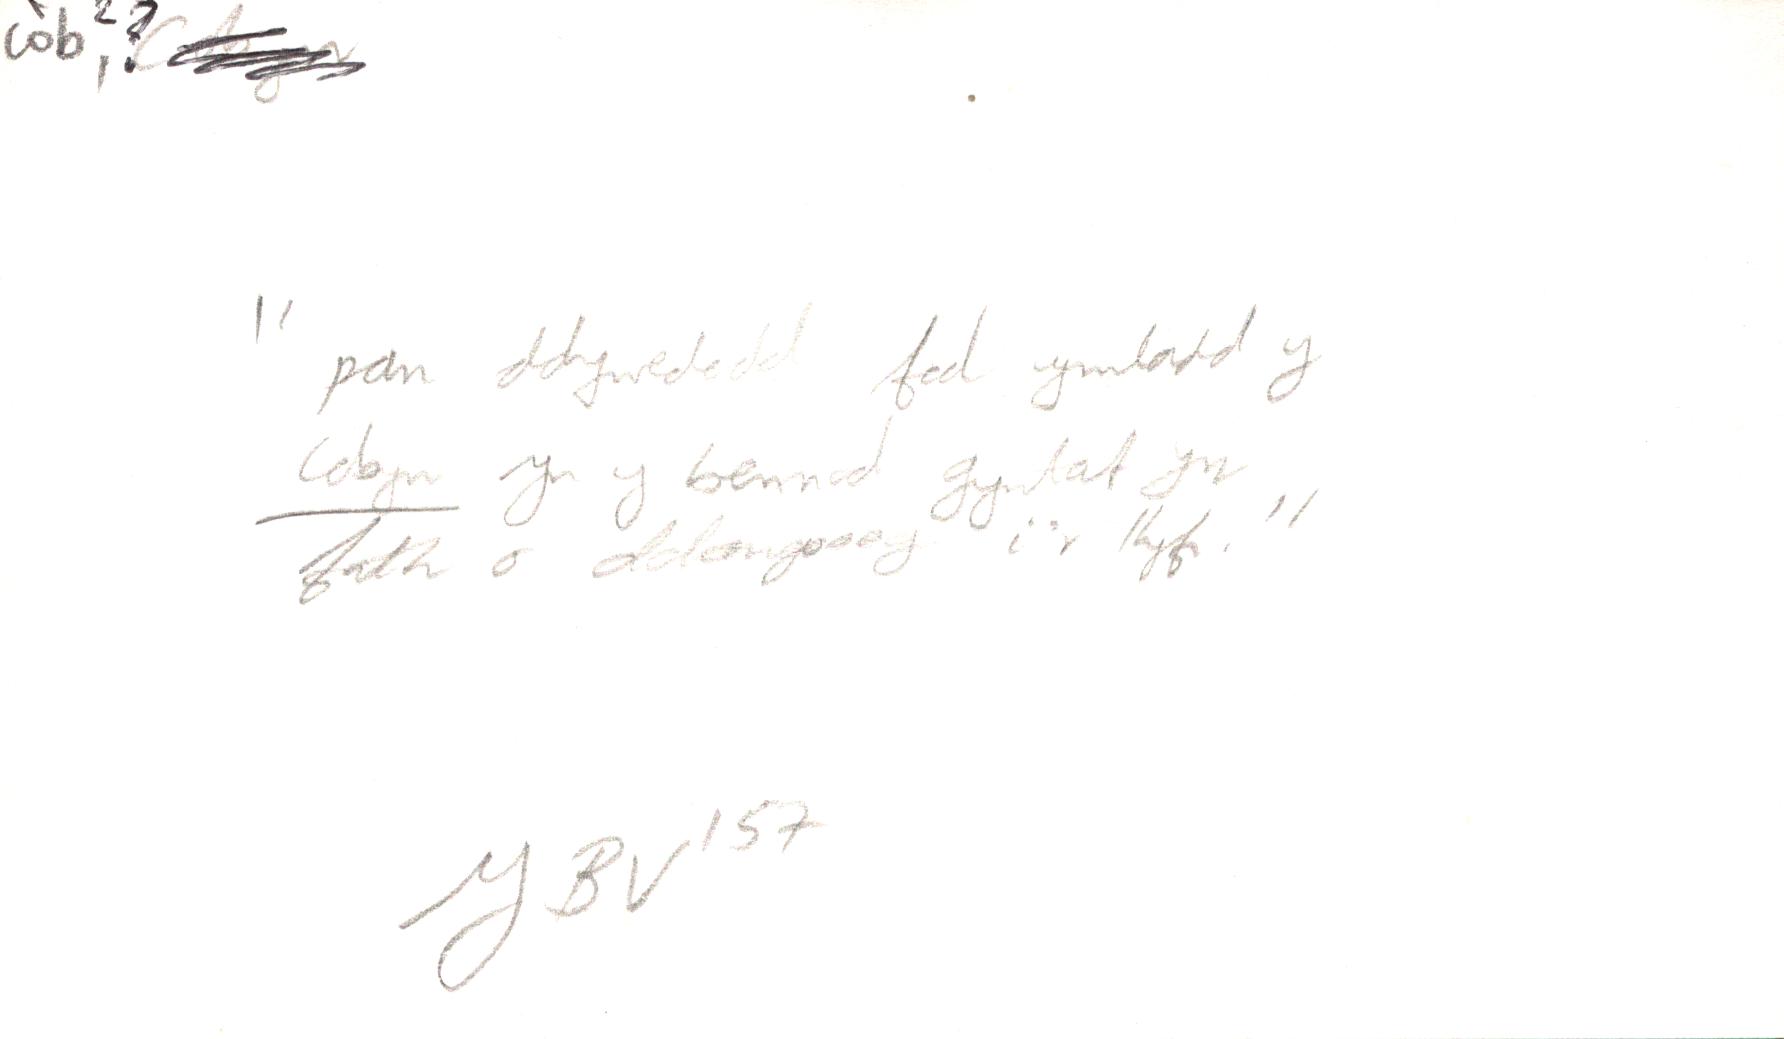 còb,??
"pan ddywededd fod ymladd y
Cobyn yn y bennod gyntaf yn
fath o ddangoseg i'r llyfr."
Y BV 157